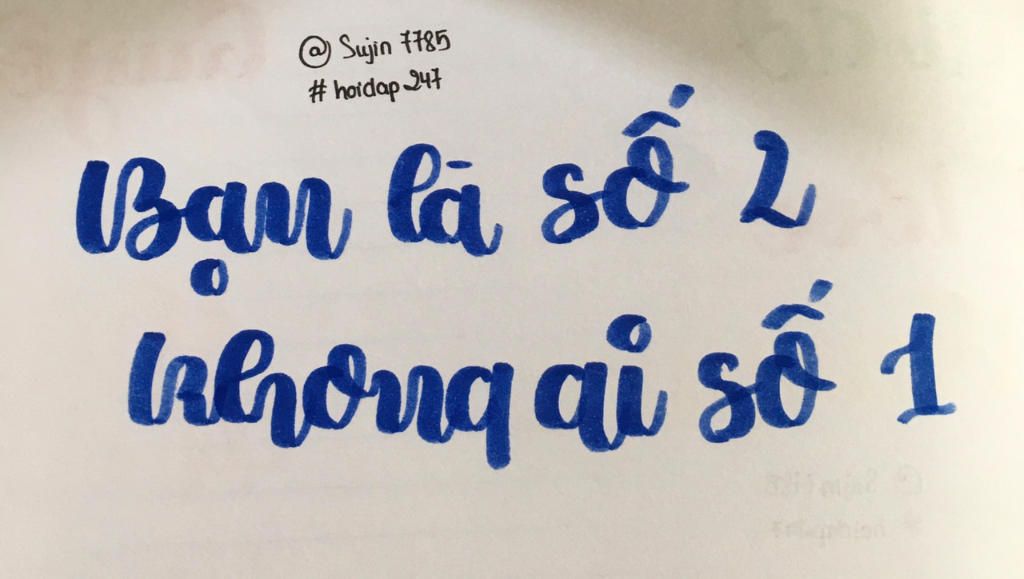 @ Sujin 7785
# hoidap 247
Bạn là số 2
Khong ai số 1